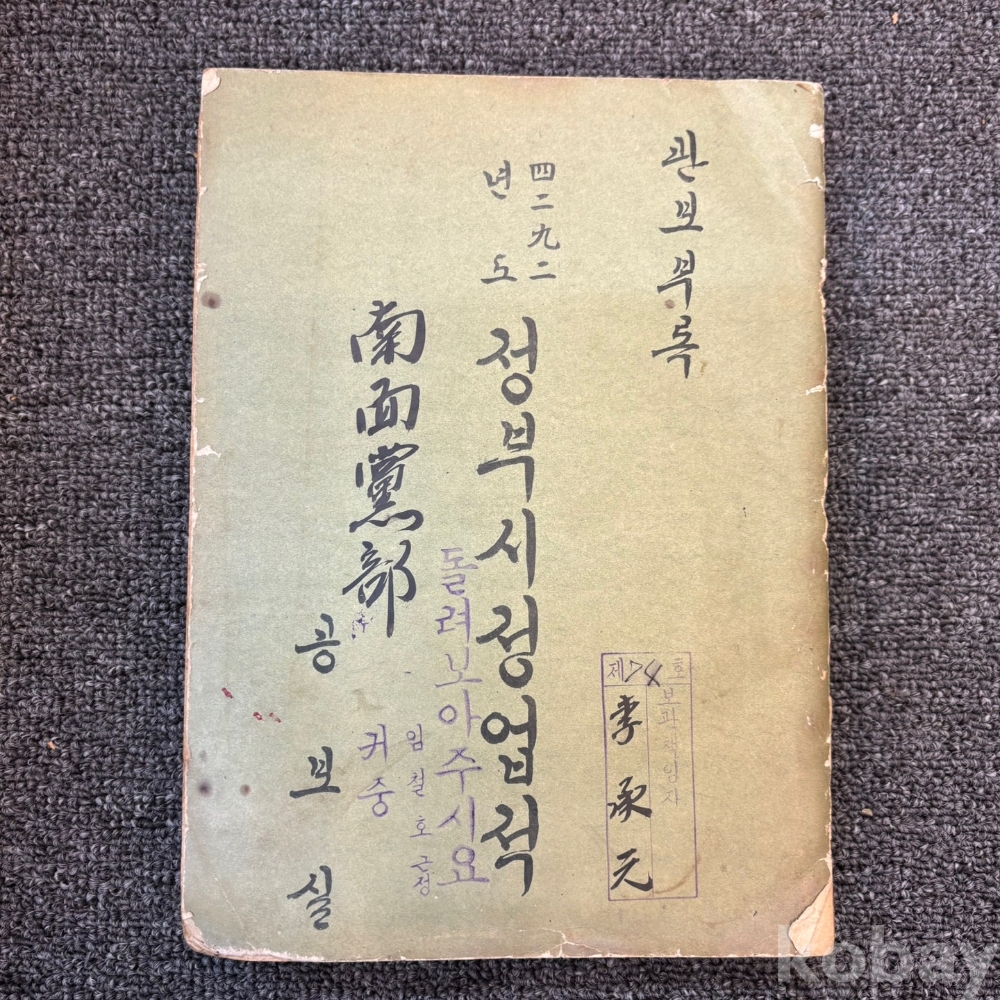 관보부록
四二九二
년도
정부시정업적
南面黨部
공보실
돌려보아주시요
임철호 근정
귀중
제74호
보관책임자
李承元
Kobay